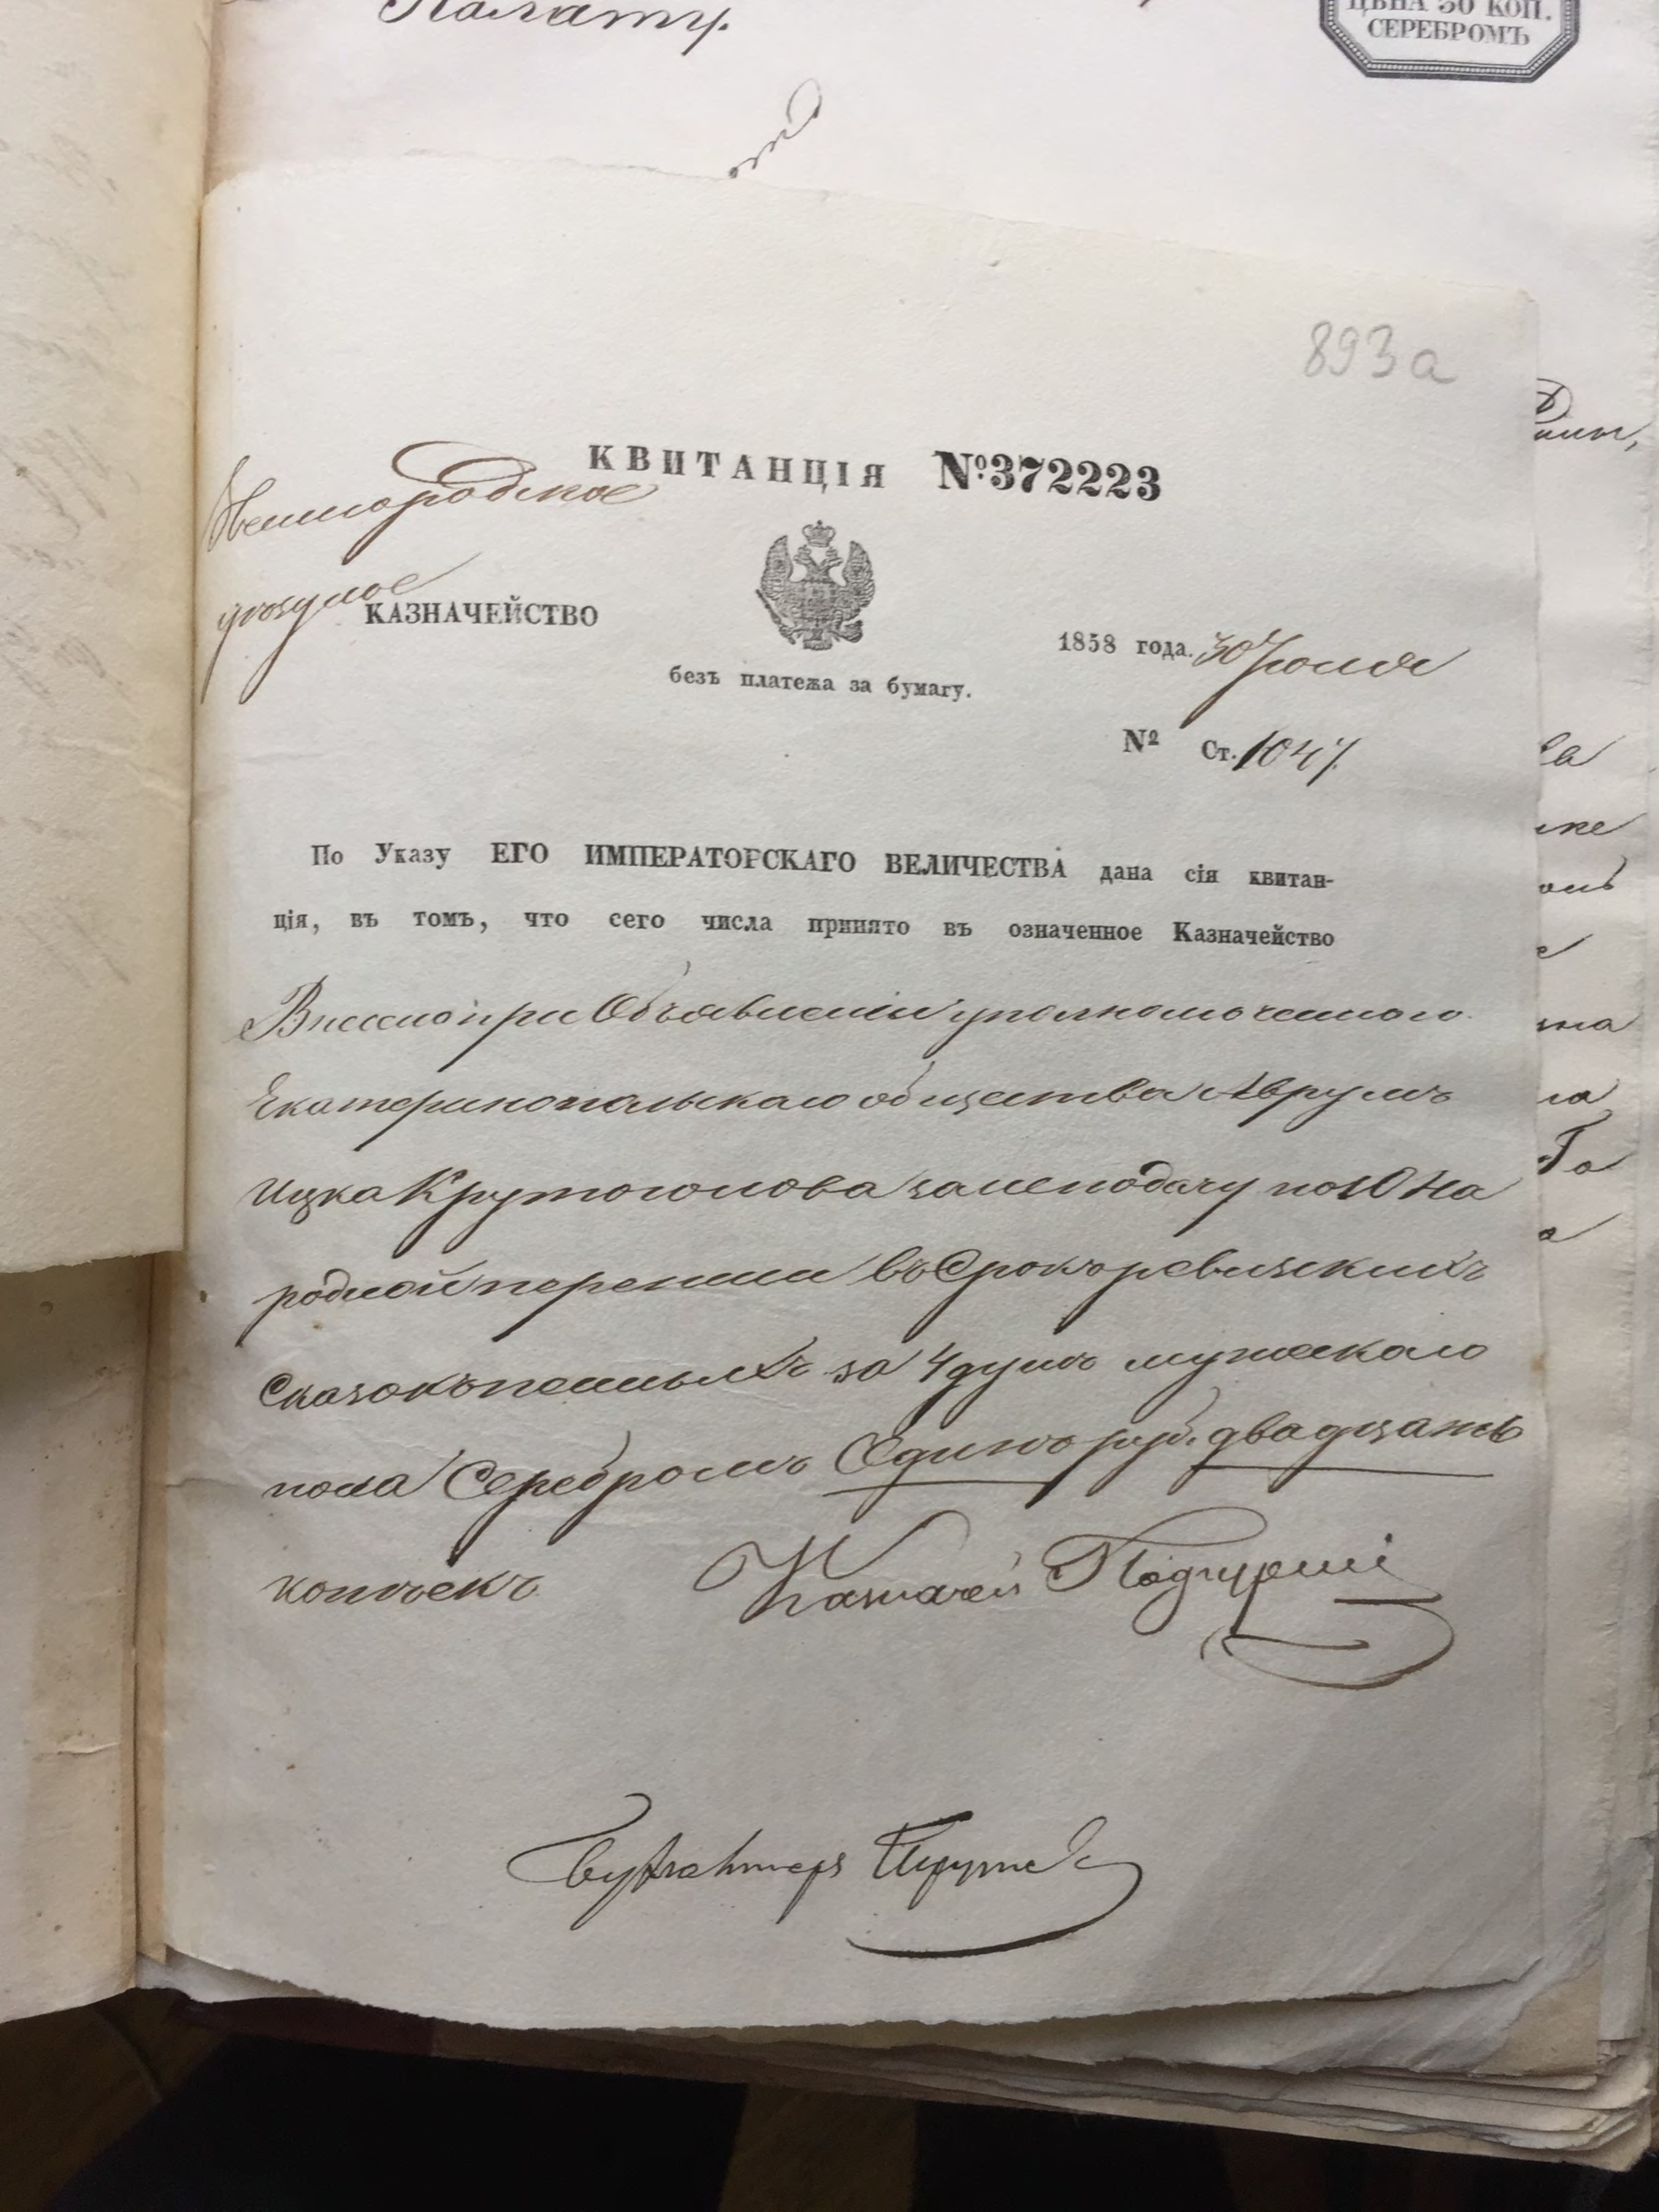 Палату.
ЦѢНА 30 КОП.
СЕРЕБРОМЪ
893а
КВИТАНЦІЯ №372223
Звенигородское
уѣздное КАЗНАЧЕЙСТВО
безъ платежа за бумагу.
1858 года. 30 Іюля
№ Ст. 1047.
По Указу ЕГО ИМПЕРАТОРСКАГО ВЕЛИЧЕСТВА дана сія квитан-
ція, въ томъ, что сего числа принято въ означенное Казначейство
при Объявленіи уполномоченнаго
Екатеринопольскаго общества Аврумъ
Ицка Крутоголова за неподачу по 10 На
родной переписи въ Срокъ ревизскихъ
Сказокъ пенныхъ за 4 душъ мужескаго
пола Серебромъ Одинъ руб. двадцать
копѣекъ
Казначей Подгурскій
Бухгалтеръ